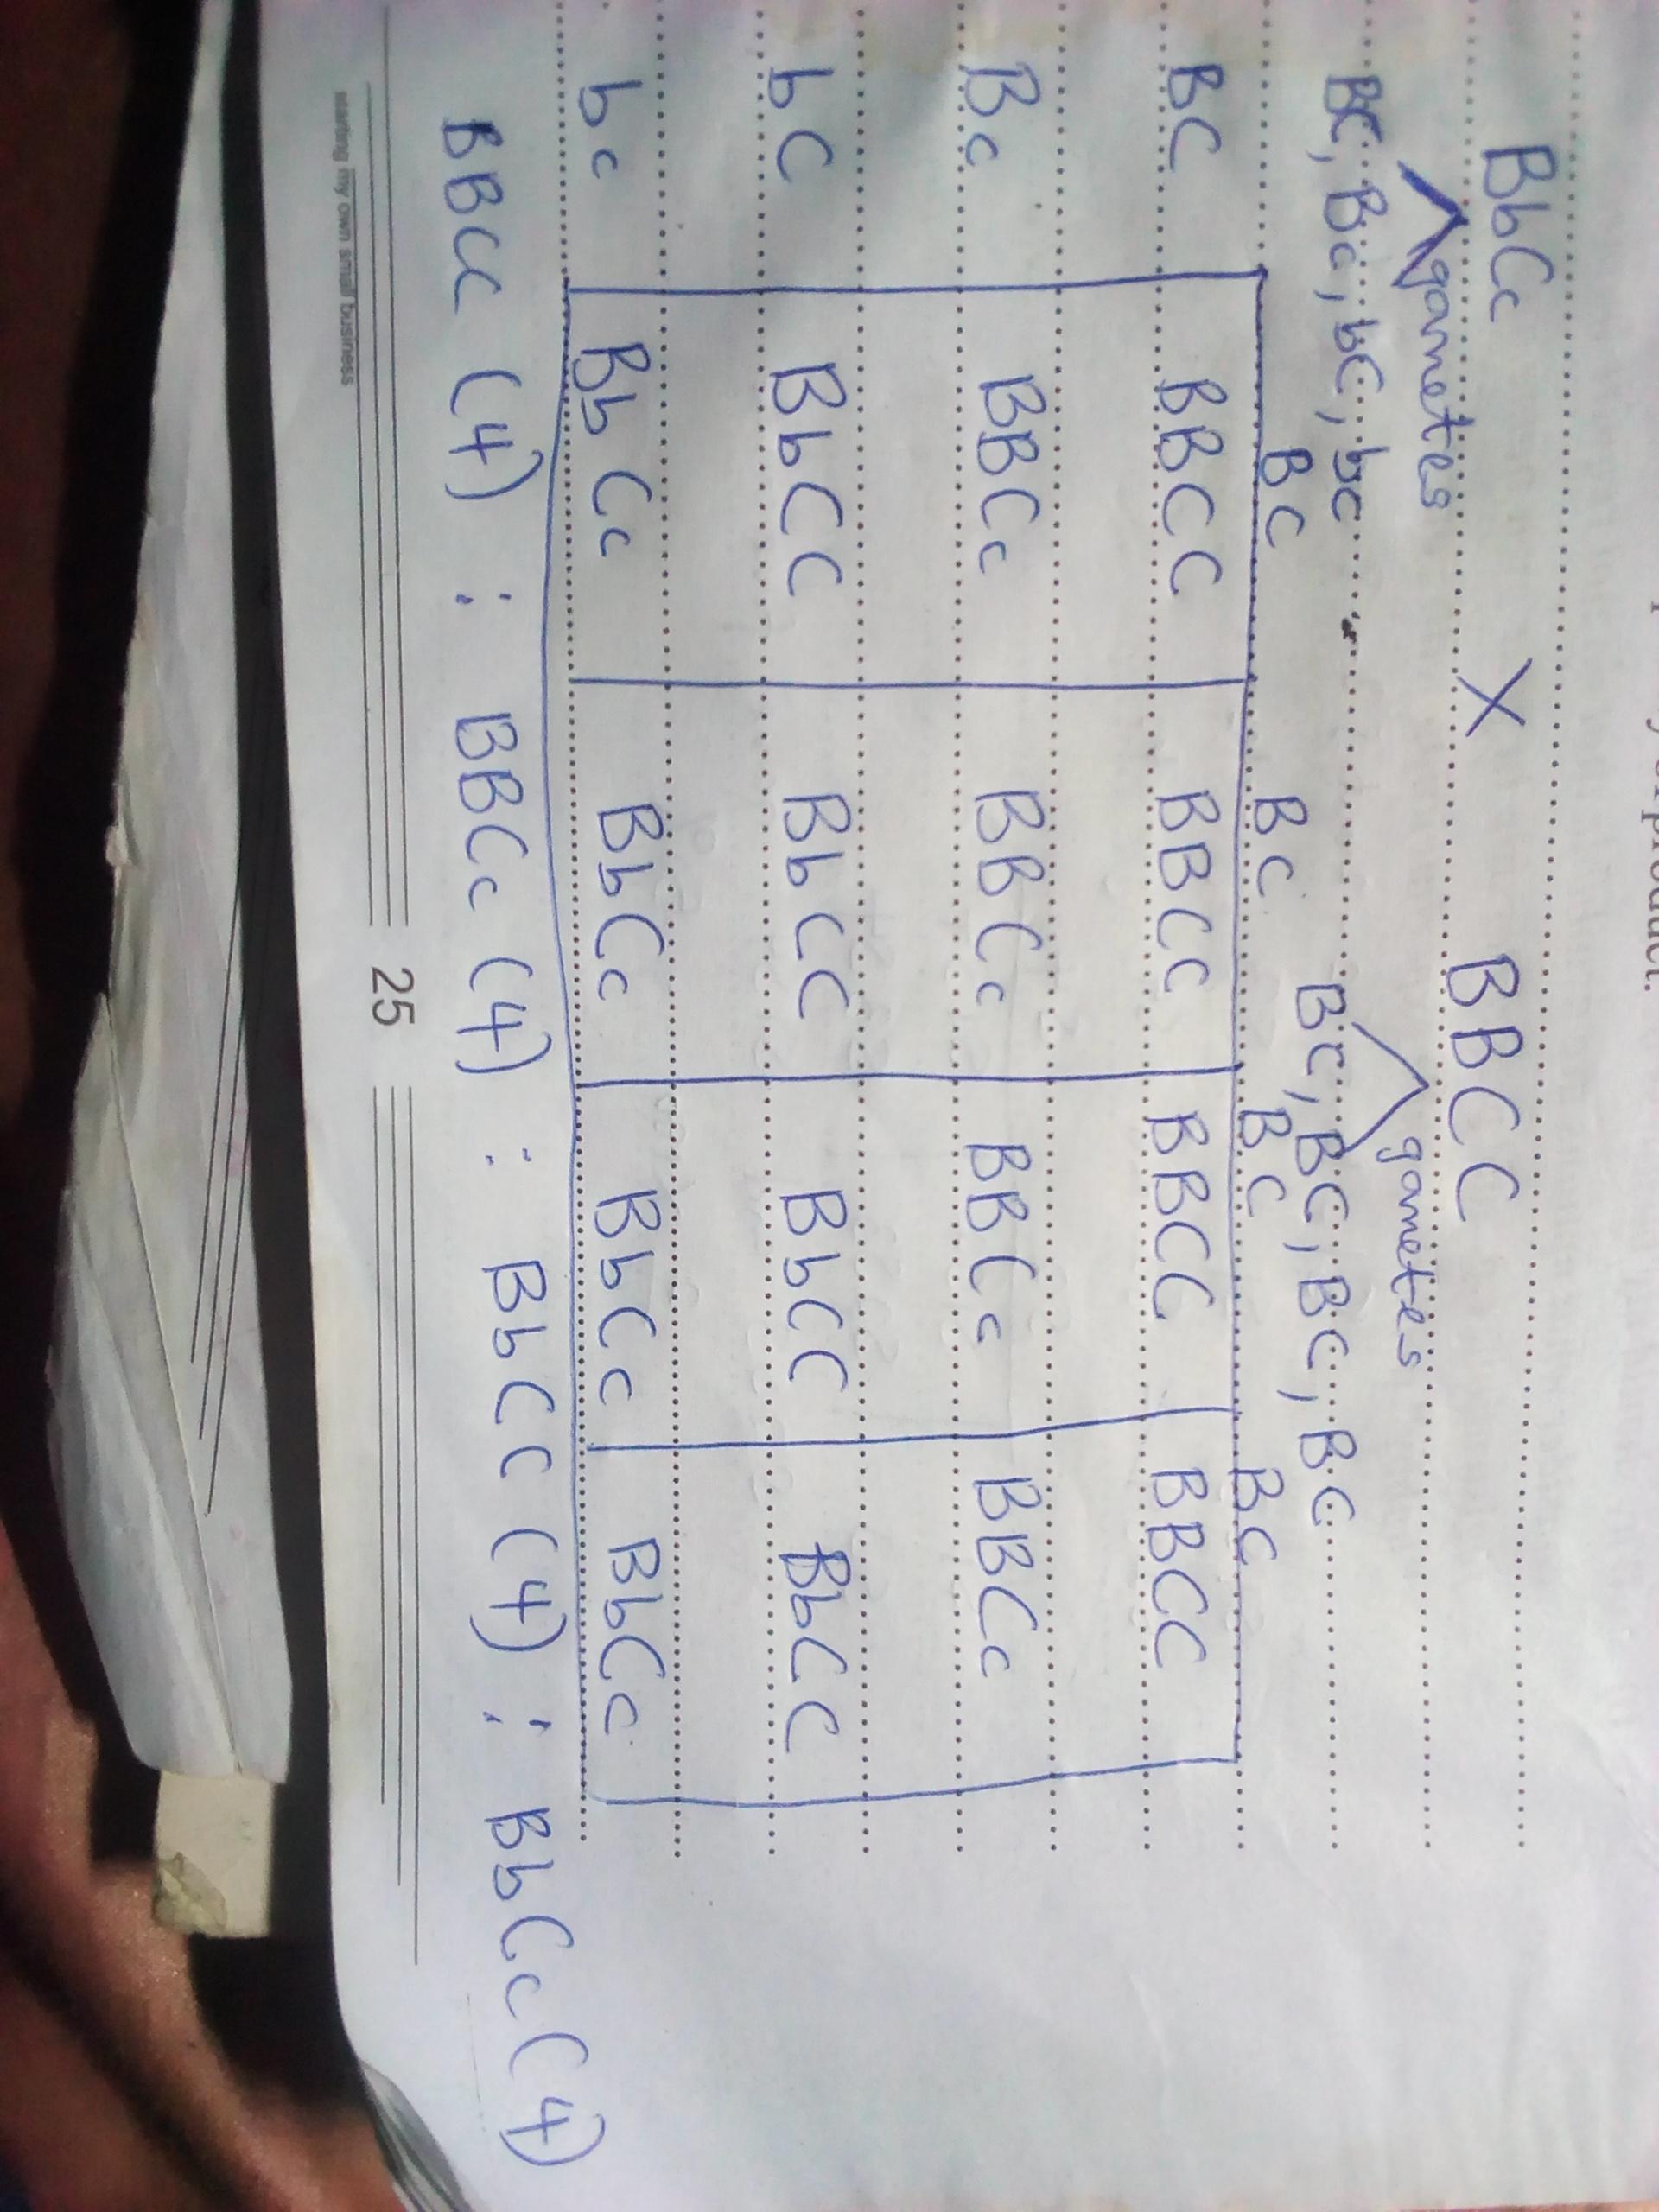 product.
BbCc X BBCC
gametes gametes
BC, Bc, bC, bc BC, BC, BC, BC
BC BC BC BC
BC BBCC BBCC BBCC BBCC
Bc BBCc BBCc BBCc BBCc
bC BbCC BbCC BbCC BbCC
bc BbCc BbCc BbCc BbCc
BBCC (4) : BBCc (4) : BbCC (4) : BbCc (4)
25
starting my own small business